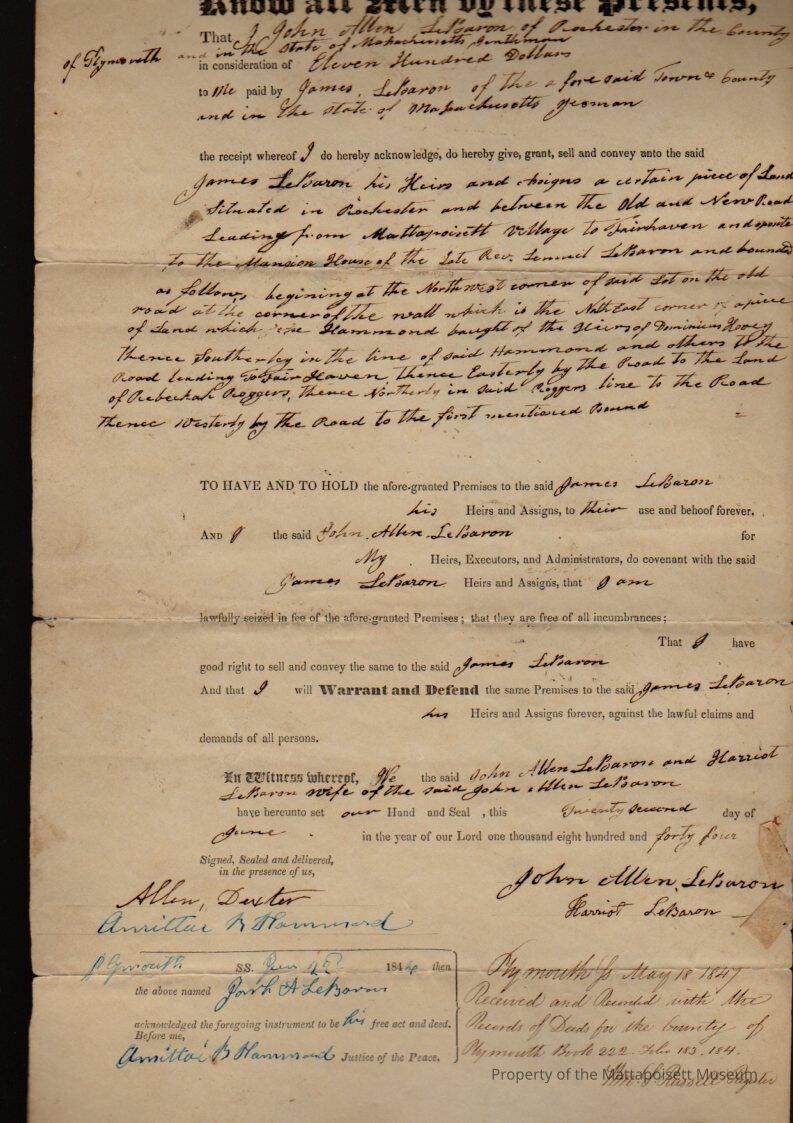 Know all Men by these Presents,
That I John Allen LeBaron of Rochester in the County
of Plymouth and in the State of Massachusetts Gentleman
in consideration of Eleven Hundred Dollars
to Me paid by James LeBaron of the afore said Town & County
and in the State of Massachusetts yeoman
the receipt whereof I do hereby acknowledge, do hereby give, grant, sell and convey unto the said
James LeBaron his Heirs and Assigns a certain piece of Land
Situated in Rochester and between the Old and New Road
Leading from Mattapoisett Village to Fairhaven and oposite
to the Mansion House of the Late Rev. Lemuel LeBaron and bounded
as follows, begining at the Northwest corner of said Lot on the old
road at the corner of the wall which is the North East corner of a piece
of Land which Hammond baught of the Heirs of Dominicus Hovey
thence Southerley in the line of said Hammond and others to the
Road leading to Fair Haven, thence Easterly by the Road to the Land
of Rebeckah Roggers, thence Northerly in said Roggers line to the Road
thence Westerly by the Road to the first mentioned Bound
TO HAVE AND TO HOLD the afore-granted Premises to the said James LeBaron
his Heirs and Assigns, to their use and behoof forever.
AND I the said John Allen LeBaron for
My Heirs, Executors, and Administrators, do covenant with the said
James LeBaron Heirs and Assigns, that I am
lawfully seized in fee of the afore-granted Premises; that they are free of all incumbrances;
That I have
good right to sell and convey the same to the said James LeBaron
And that I will Warrant and Defend the same Premises to the said James LeBaron
his Heirs and Assigns forever, against the lawful claims and
demands of all persons.
In Witness whereof, We the said John Allen LeBaron and Harriot
LeBaron wife of the said John Allen LeBaron
have hereunto set our Hand and Seal , this Twenty second day of
June in the year of our Lord one thousand eight hundred and forty four
Signed, Sealed and delivered,
in the presence of us,
John Allen LeBaron
Allen Dexter
Harriot LeBaron
Amittai B Hammond
Plymouth SS. 1844 then
the above named John A LeBaron
acknowledged the foregoing instrument to be his free act and deed.
Before me,
Amittai B Hammond Justice of the Peace.
Plymouth Ss May 18 1847
Received and Recorded with the
Records of Deeds for the County of
Plymouth Book 222. Folio 183, 184.
Wm. S Russell Register
Property of the Mattapoisett Museum